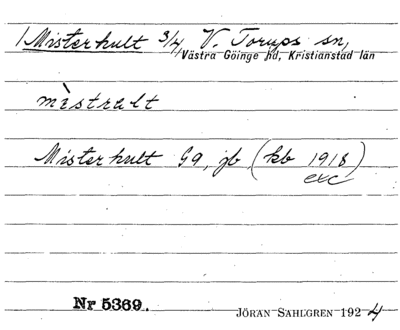 Misterhult 3/4 V. Torups sn,
Västra Göinge hd, Kristianstad län
mistralt
Misterhult Gg, jb (kb 1918)
exc
Nr 5369.
JÖRAN SAHLGREN 1924